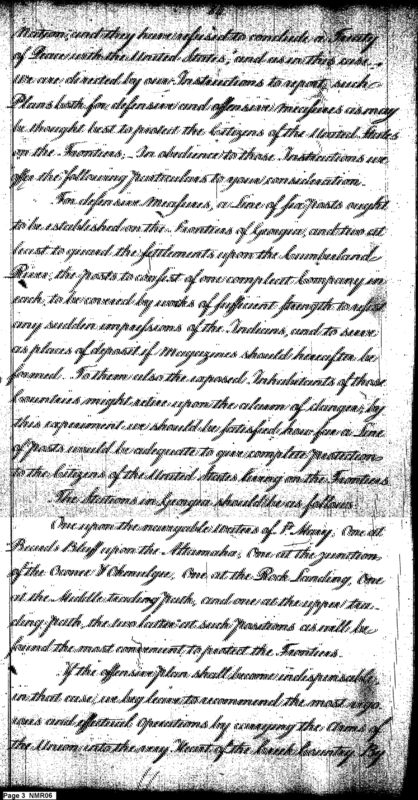 Nation, and they have refused to conclude a Treaty
of Peace with the United States, and as in this case
we are directed by our Instructions to report such
Plans both for defensive and offensive measures as may
be thought best to protect the Citizens of the United States
on the Frontiers;- In obedience to those Instructions we
offer the following particulars to your consideration.
For defensive Measures, a Line of six posts ought
to be established on the Frontiers of Georgia, and two at
least to guard the Settlements upon the Cumberland
River, the posts to consist of one compleat Company in
each, to be covered by works of sufficient strength to resist
any sudden impressions of the Indians, and to serve
as places of deposit if Magazines should hereafter be
formed. To them also the exposed Inhabitants of those
Countries might retire upon the alarm of danger; by
this experiment we should be satisfied how far a Line
of posts would be adequate to give complete protection
to the Citizens of the United States living on the Frontiers
The Stations in Georgia should be as follows
One upon the navigable Waters of St. Mary. One at
Beards Bluff upon the Altamaha, One at the junction
of the Oconee & Okmulgee, One at the Rock Landing, One
at the Middle trading path, and one at the upper tra-
ding path, the two latter at such positions as will be
found the most convenient to protect the Frontiers.
If the offensive plan shall become indispensable,
in that case, we beg leave to recommend the most vigo
rous and effectual Operations by carrying the Arms of
the Union into the very Heart of the Creek Country. By
Page 3 NMR06